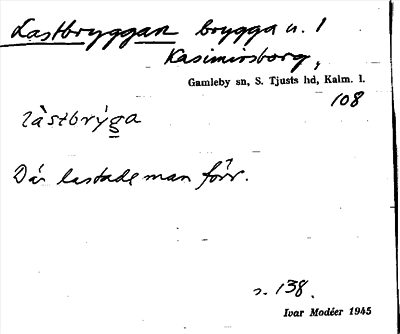 Lastbryggan brygga u. l
Kasimirsborg,
Gamleby sn, S. Tjusts hd, Kalm. l.
108
làstbrýga
Där lastade man förr.
s. 138.
Ivar Modéer 1945